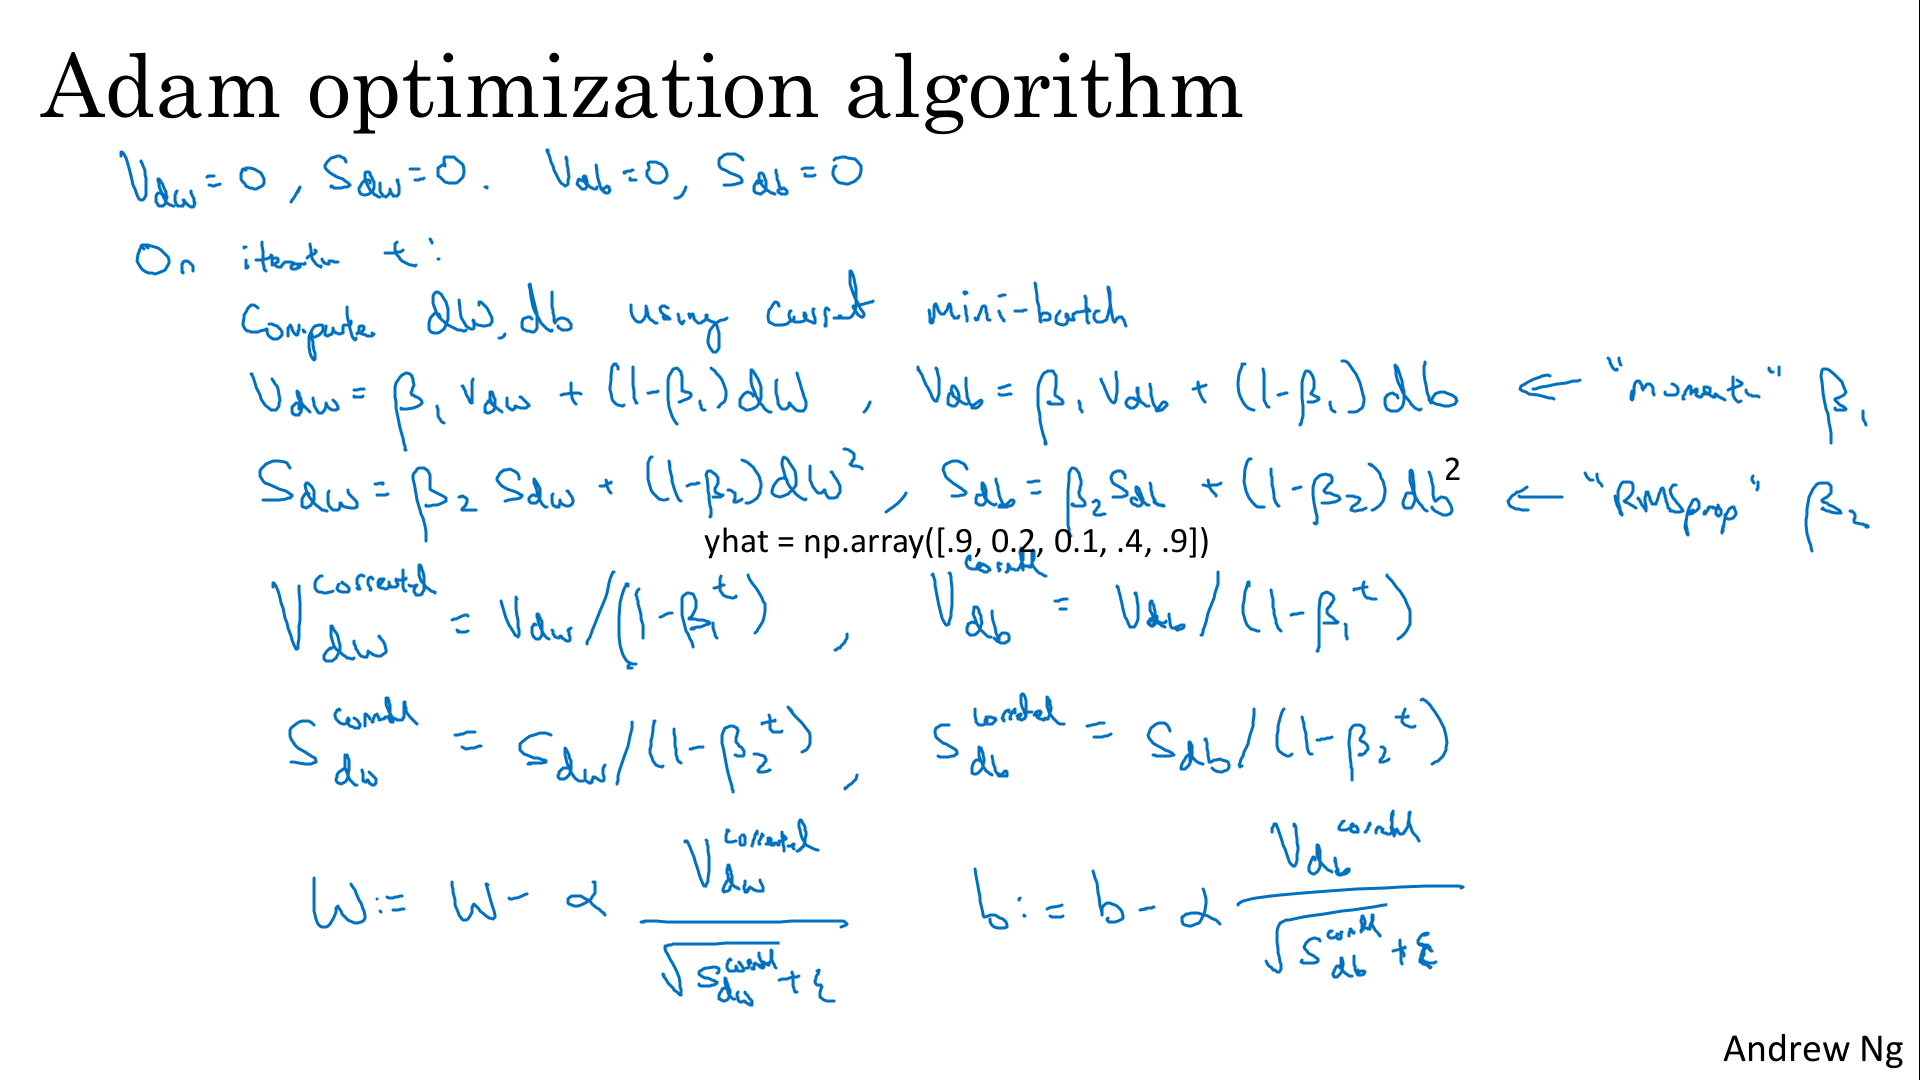 Adam optimization algorithm
V_dw = 0, S_dw = 0. V_db = 0, S_db = 0
On iteratn t:
Compute dW, db using current mini-batch
V_dw = β_1 V_dw + (1-β_1) dW, V_db = β_1 V_db + (1-β_1) db ← "moment" β_1
S_dw = β_2 S_dw + (1-β_2) dW², S_db = β_2 S_db + (1-β_2) db² ← "RMSprop" β_2
yhat = np.array([.9, 0.2, 0.1, .4, .9])
V_dw^corrected = V_dw/(1-β_1^t), V_db^corrected = V_db/(1-β_1^t)
S_dw^corrected = S_dw/(1-β_2^t), S_db^corrected = S_db/(1-β_2^t)
W := W - α V_dw^corrected / (√S_dw^corrected + ε) b := b - α V_db^corrected / (√S_db^corrected + ε)
Andrew Ng